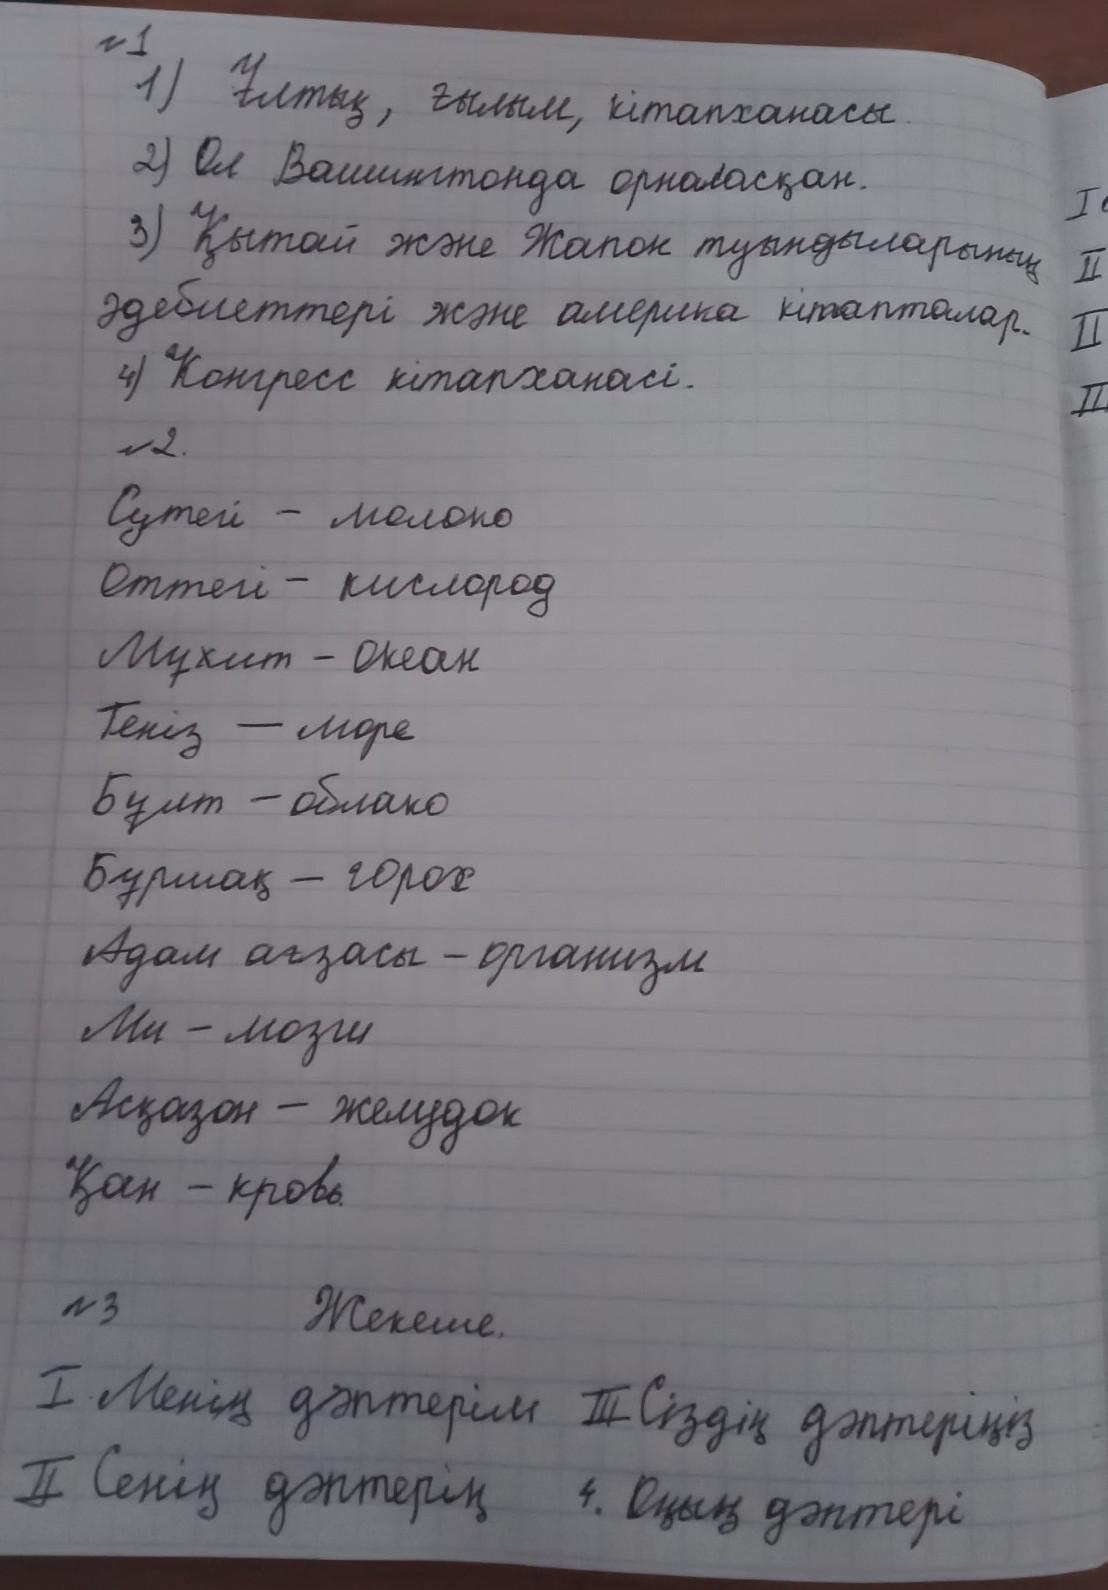 №1
1) Ұлттық, ғылым, кітапханасы.
2) Ол Вашингтонда орналасқан.
3) Қытай және Жапон туындыларының
әдебиеттері және америка кітапталар.
4) Конгресс кітапханасі.
№2.
Сутегі – молоко
Оттегі – кислород
Мұхит – океан
Теңіз — море
Бұлт – облако
Бұршақ – горох
Адам ағзасы – организм
Ми – мозги
Асқазан – желудок
Қан – кровь.
№3 Жекеше.
I Менің дәптерім III Сіздің дәптеріңіз
II Сенің дәптерің 4. Оның дәптері
I
II
II
III